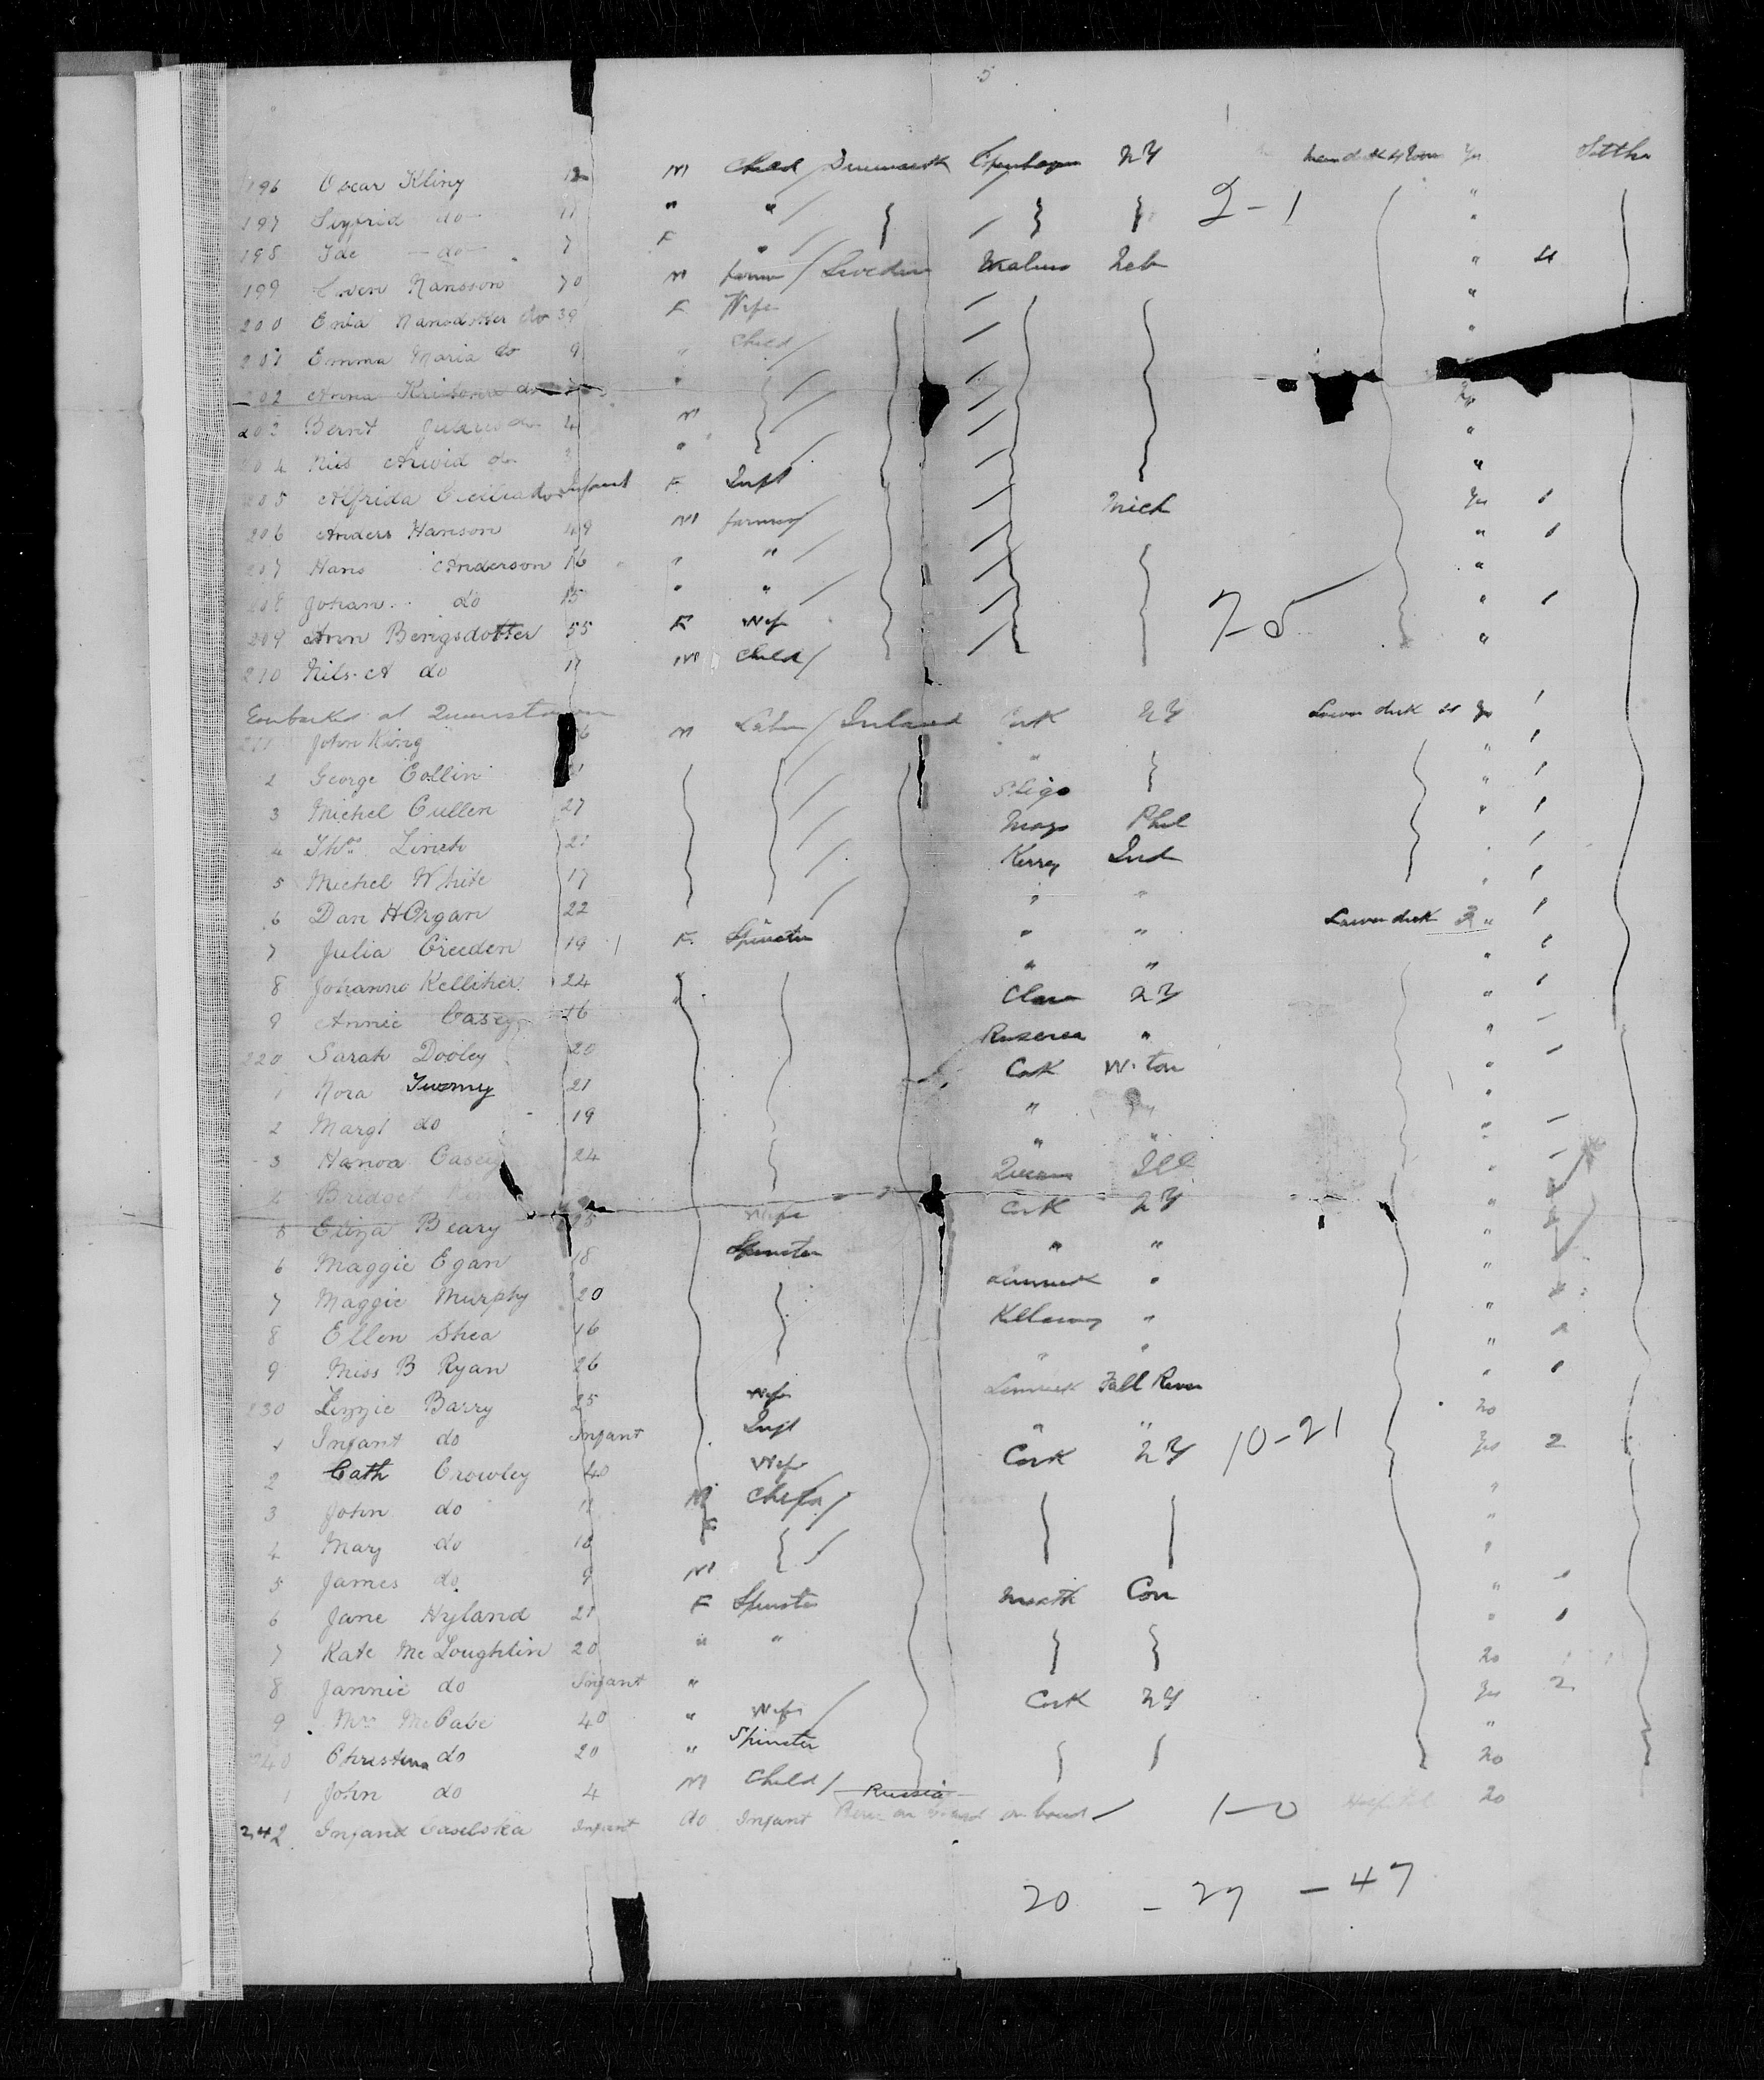 5
196 Oscar Kling 12 M Child / Denmark Copenhagen NY Yes
197 Sigfrid do 11 " " / 2-1 "
198 Ide do 7 F " / "
199 Swen Nansson 70 M farmer / Sweden Malmo Neb " 4
200 Nansdotter do 39 F Wife "
201 Emma Maria do 9 " Child / "
202 Anna do "
203 Bernt do 4 M "
204 Nils Arvid do 3 " "
205 Alfrida do Infant F Inft "
206 Anders Hanson 49 M farmer / Mich Yes 1
207 Hans Anderson 16 " " / " 1
208 Johan do 15 " " / "
209 Ann Bengsdotter 55 F Wife 7-5 " 1
210 Nils A do 11 M Child / "
Embarked at Queenstown
211 John King M Labr / Ireland Cork NY Lower deck Yes 1
2 George Collin " " 1
3 Michel Cullen 27 Sligo " 1
4 Thos Linch 21 Mayo Phil " 1
5 Michel White 17 Kerry Ind " 1
6 Dan HOrgan 22 " " " 1
7 Julia Creeden 19 F. Spinster " " Lower deck " 1
8 Johanno Kelliher 24 " " " " 1
9 Annie Casey 16 Clare NY " 1
220 Sarah Dooley 20 Roscrea " "
1 Nora Twomy 21 Cork W. ton "
2 Margt do 19 " " "
3 Hanoa Casey 24 " " "
4 Bridget Queens Ill "
5 Eliza Beary 25 Wife Cork NY "
6 Maggie Egan 18 Spinster " " "
7 Maggie Murphy 20 Limerick " "
8 Ellen Shea 16 Killarney " "
9 Miss B Ryan 26 " " "
230 Lizzie Barry 25 Wife Limerick Fall River " 1
1 Infant do Infant Inft " " No
2 Cath Crowley 40 Wife Cork NY 10-21 Yes 2
3 John do 11 M Child / "
4 Mary do 10 F / "
5 James do 9 M "
6 Jane Hyland 21 F Spinster Meath Con " 1
7 Kate McLoughlin 20 " " " 1
8 Jannie do Infant " No
9 Mrs McCabe 40 " Wife / Cork NY Yes 2
240 Christina do 20 " Spinster "
1 John do 4 M Child / No
Russia
242 Infand Caselska Infant do Infant Born on board on board 1-0 Hospital No
20 - 27 - 47